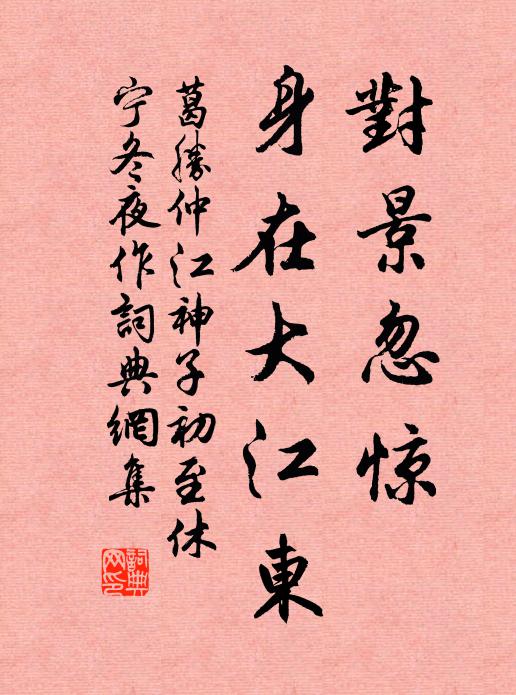 對景忽惊
身在大江東
葛勝仲江神子初至休
宁冬夜作詞典網集
詞典网印